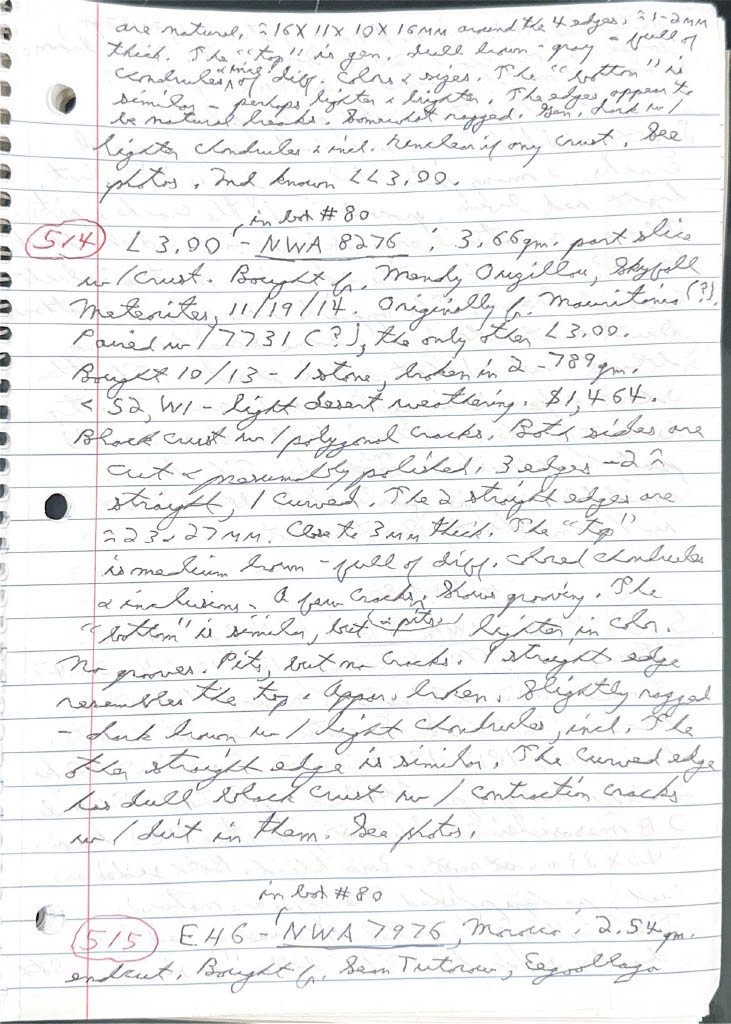 are natural, ≈ 16 X 11 X 10 X 16 MM around the 4 edges. ≈ 1-2 MM
thick. The "top" is gen. dull brown-gray - full of
chondrules & incl. of diff. colors & sizes. The "bottom" is
similar - perhaps lighter & brighter. The edges appear to
be natural breaks. Somewhat ragged. Gen. dark w/
lighter chondrules & incl. Unclear if any crust. See
photos. 2nd known LL3.00.
in box #80
514 L3.00 - NWA 8276 : 3.66 gm. part slice
w/ crust. Bought fr. Mendy Ouzillou, Skyfall
Meteorites, 11/19/14. Originally fr. Mauritania (?).
Paired w/ 7731 (?), the only other L3.00.
Bought 10/13 - 1 stone, broken in 2 - 789 gm.
< S2, W1 - light desert weathering. $1,464.
Black crust w/ polygonal cracks. Both sides are
cut & presumably polished. 3 edges - 2 ≈
straight, 1 curved. The 2 straight edges are
≈ 23 & 27 MM. Close to 3 MM thick. The "top"
is medium brown - full of diff. colored chondrules
& inclusions. A few cracks & pits. Shows grooving. The
"bottom" is similar, but lighter in color.
No grooves. Pits, but no cracks. 1 straight edge
resembles the top. Appar. broken. Slightly ragged
- dark brown w/ light chondrules, incl. The
other straight edge is similar. The curved edge
has dull black crust w/ contraction cracks
w/ dirt in them. See photos.
in box #80
515 EH6 - NWA 7976, Morocco : 2.54 gm.
endcut. Bought fr. Sean Tutorow, Eegooblago